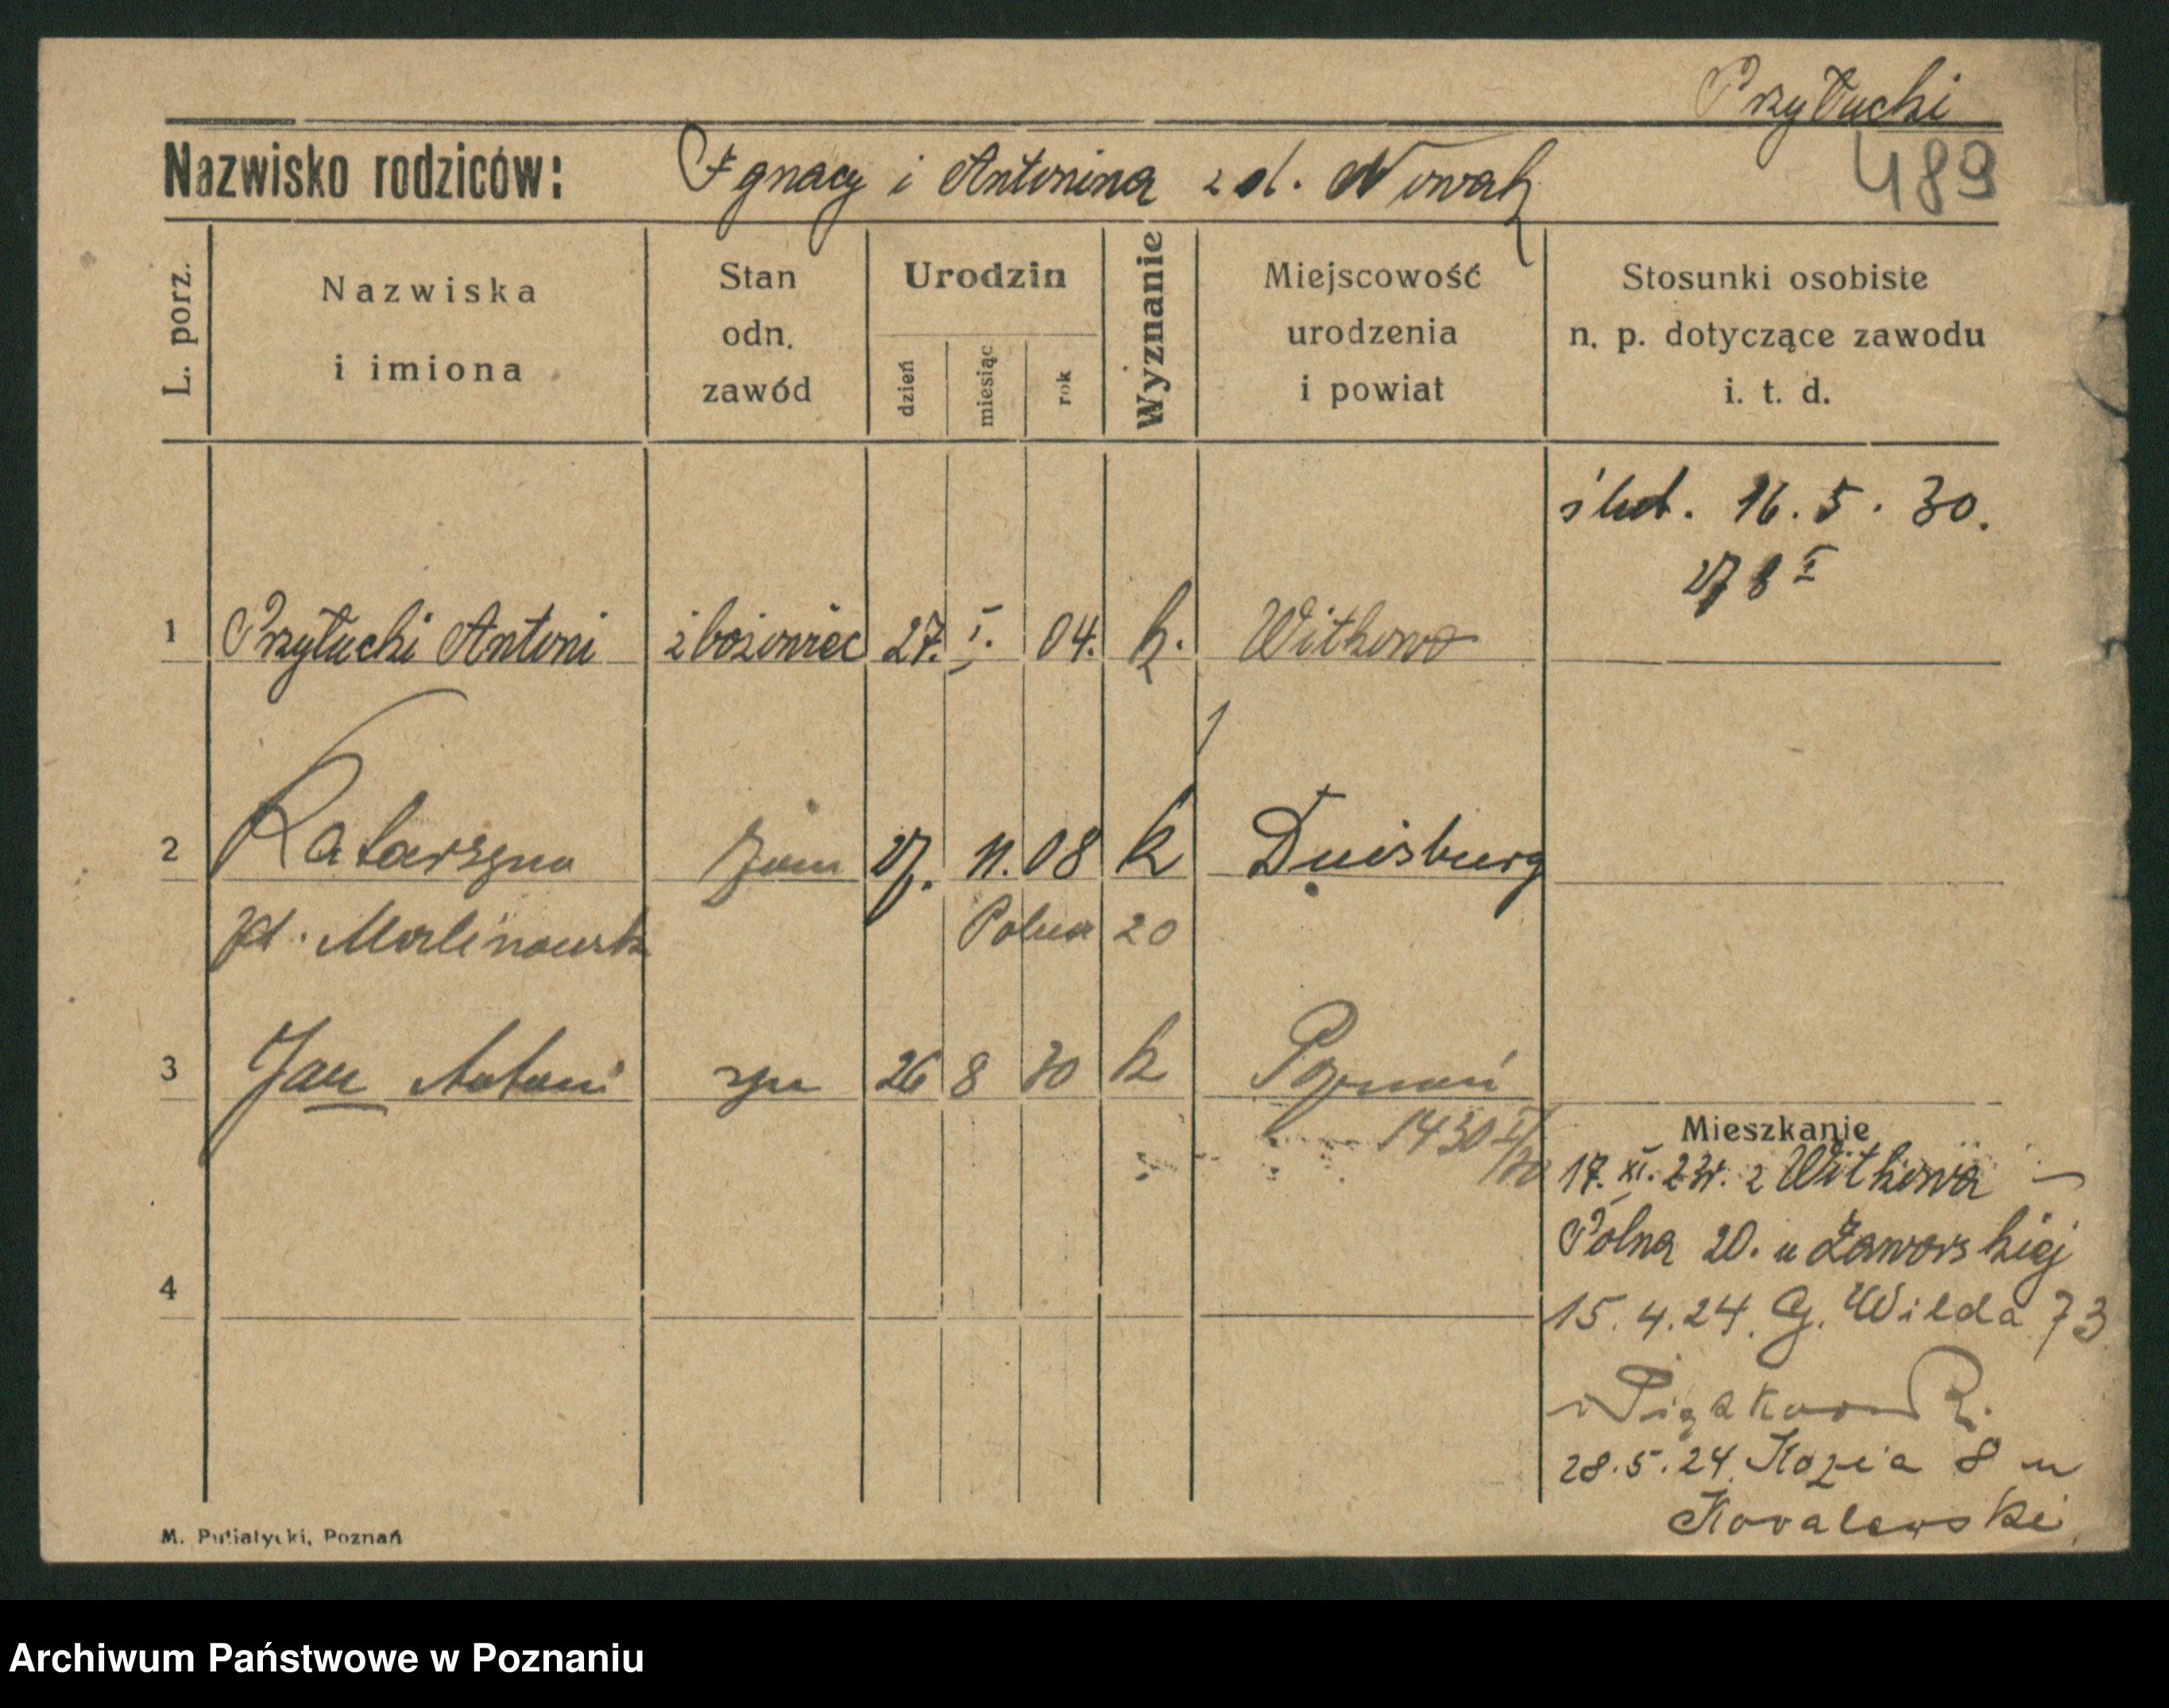 Przyłucki
489
Nazwisko rodziców: Ignacy i Antonina z d. Nowak
L. porz.
Nazwiska i imiona
Stan odn. zawód
Urodzin
dzień miesiąc rok
Wyznanie
Miejscowość urodzenia i powiat
Stosunki osobiste n. p. dotyczące zawodu i. t. d.
ślub. 16. 5. 30.
278 I
1 Przyłucki Antoni zbożowiec 27. I. 04. k. Witkowo
2 Katarzyna żona 27. 11. 08 k Duisburg
zd. Malinowska Polna 20
3 Jan Antoni syn 26 8 30 k Poznań
1430
Mieszkanie
17. XI. 23r. z Witkowa
Polna 20. u Zaworskiej
15. 4. 24. G. Wilda 73
28. 5. 24. Kozia 8 u
Kowalewski
4
M. Putiatycki, Poznań
Archiwum Państwowe w Poznaniu